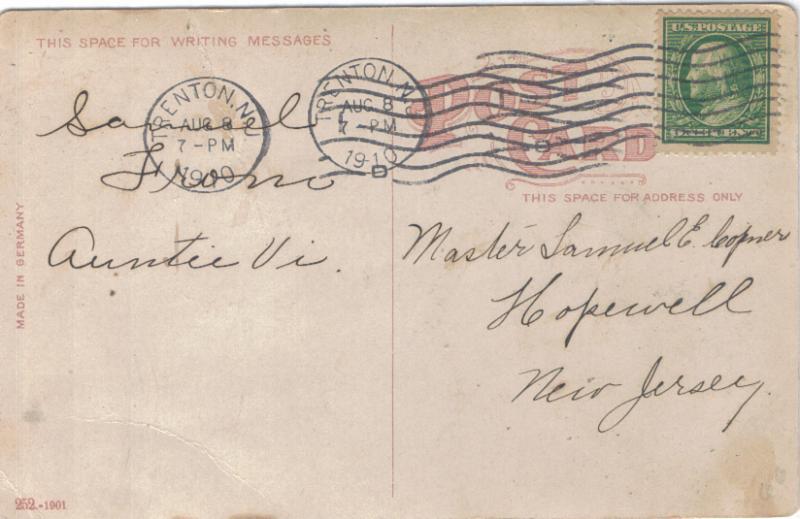 THIS SPACE FOR WRITING MESSAGES
U.S. POSTAGE
TRENTON, N.J.
AUG 8
7 - PM
1910
TRENTON, N.J.
AUG 8
7 - PM
1910
D
POST
CARD
THIS SPACE FOR ADDRESS ONLY
Samuel
From
Auntie Vi.
Master Samuel E. Copner
Hopewell
New Jersey.
MADE IN GERMANY
252.-1901